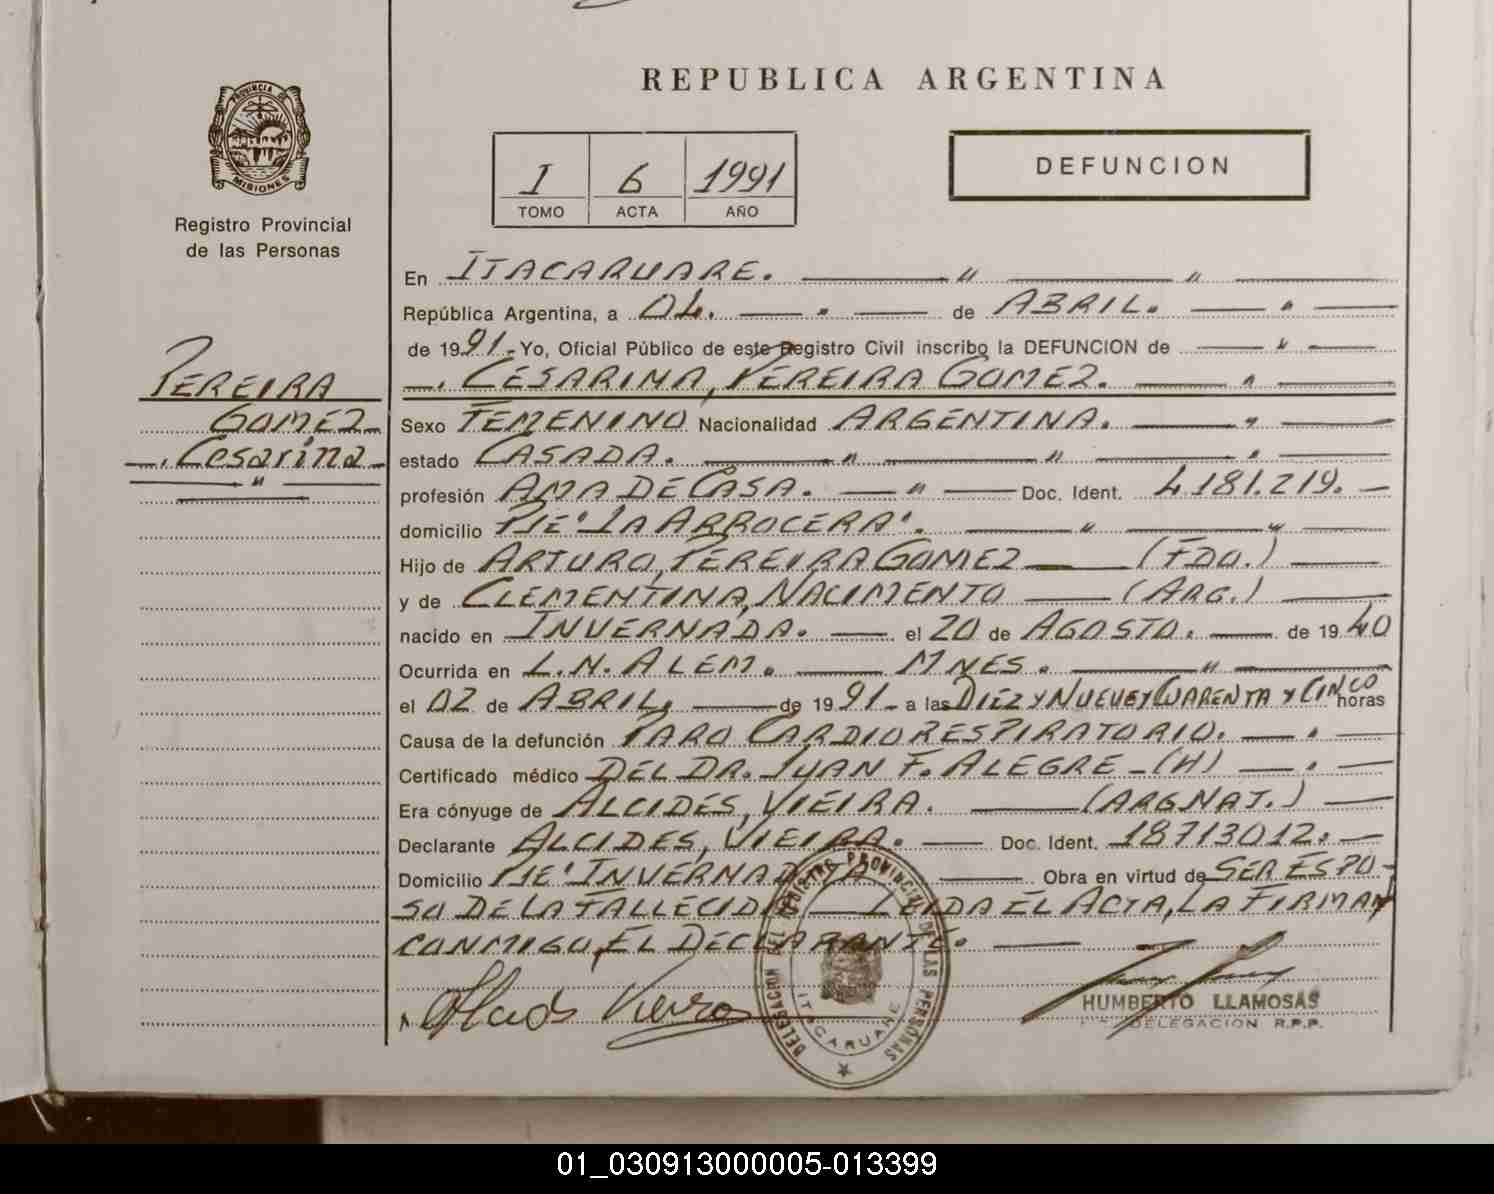 REPUBLICA ARGENTINA
PROVINCIA DE MISIONES
Registro Provincial
de las Personas
I 6 1991
TOMO ACTA AÑO
DEFUNCION
En ITACARUARE.
República Argentina, a 04. de ABRIL.
de 1991.- Yo, Oficial Público de este Registro Civil inscribo la DEFUNCION de
CESARINA, PEREIRA GOMEZ.
PEREIRA
GOMEZ
Cesarina
Sexo FEMENINO Nacionalidad ARGENTINA.
estado CASADA.
profesión AMA DE CASA. Doc. Ident. 4.181.219.
domicilio PJE "LA ARROCERA".
Hijo de ARTURO, PEREIRA GOMEZ (FDO.)
y de CLEMENTINA, NACIMENTO (ARG.)
nacido en INVERNADA. el 20 de AGOSTO. de 1940
Ocurrida en L.N. ALEM. MNES.
el 02 de ABRIL. de 1991- a las DIEZ Y NUEVE Y CUARENTA Y CINCO horas
Causa de la defunción PARO CARDIORESPIRATORIO.
Certificado médico DEL DR. JUAN F. ALEGRE -(H)
Era cónyuge de ALCIDES, VIEIRA. (ARG NAT.)
Declarante ALCIDES, VIEIRA. Doc. Ident. 18713012.
Domicilio PJE "INVERNADITA Obra en virtud de SER ESPO-
SO DE LA FALLECIDA LEIDA EL ACTA, LA FIRMAN
CONMIGO, EL DECLARANTE.
Alcides Vieira
DELEGACION DEL REGISTRO PROVINCIAL DE LAS PERSONAS
ITACARUARE
HUMBERTO LLAMOSAS
DELEGACION R.P.P.
01_030913000005-013399